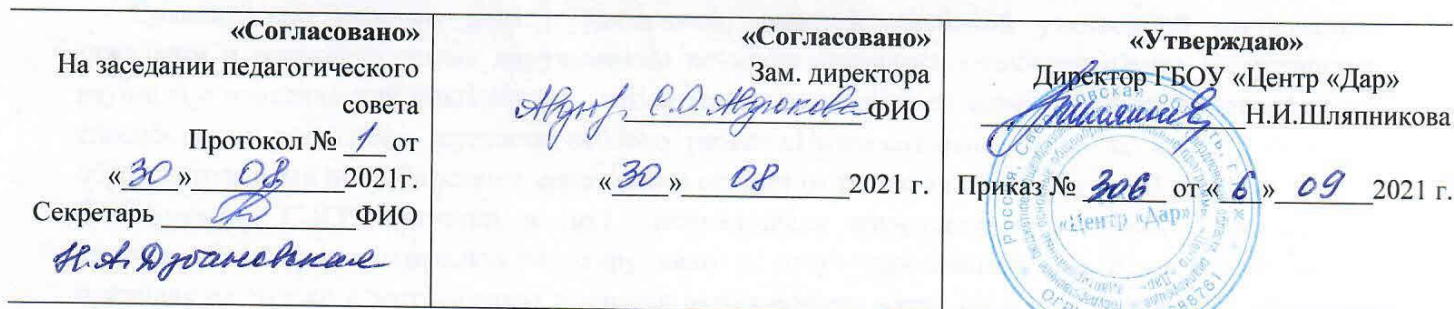 «Согласовано»
На заседании педагогического
совета
Протокол № 1 от
«30» 08 2021г.
Секретарь ФИО
Н.А. Дубановская
«Согласовано»
Зам. директора
С.О. ФИО
«30» 08 2021 г.
«Утверждаю»
Директор ГБОУ «Центр «Дар»
Н.И.Шляпникова
Приказ № 306 от «6» 09 2021 г.
«Центр «Дар»